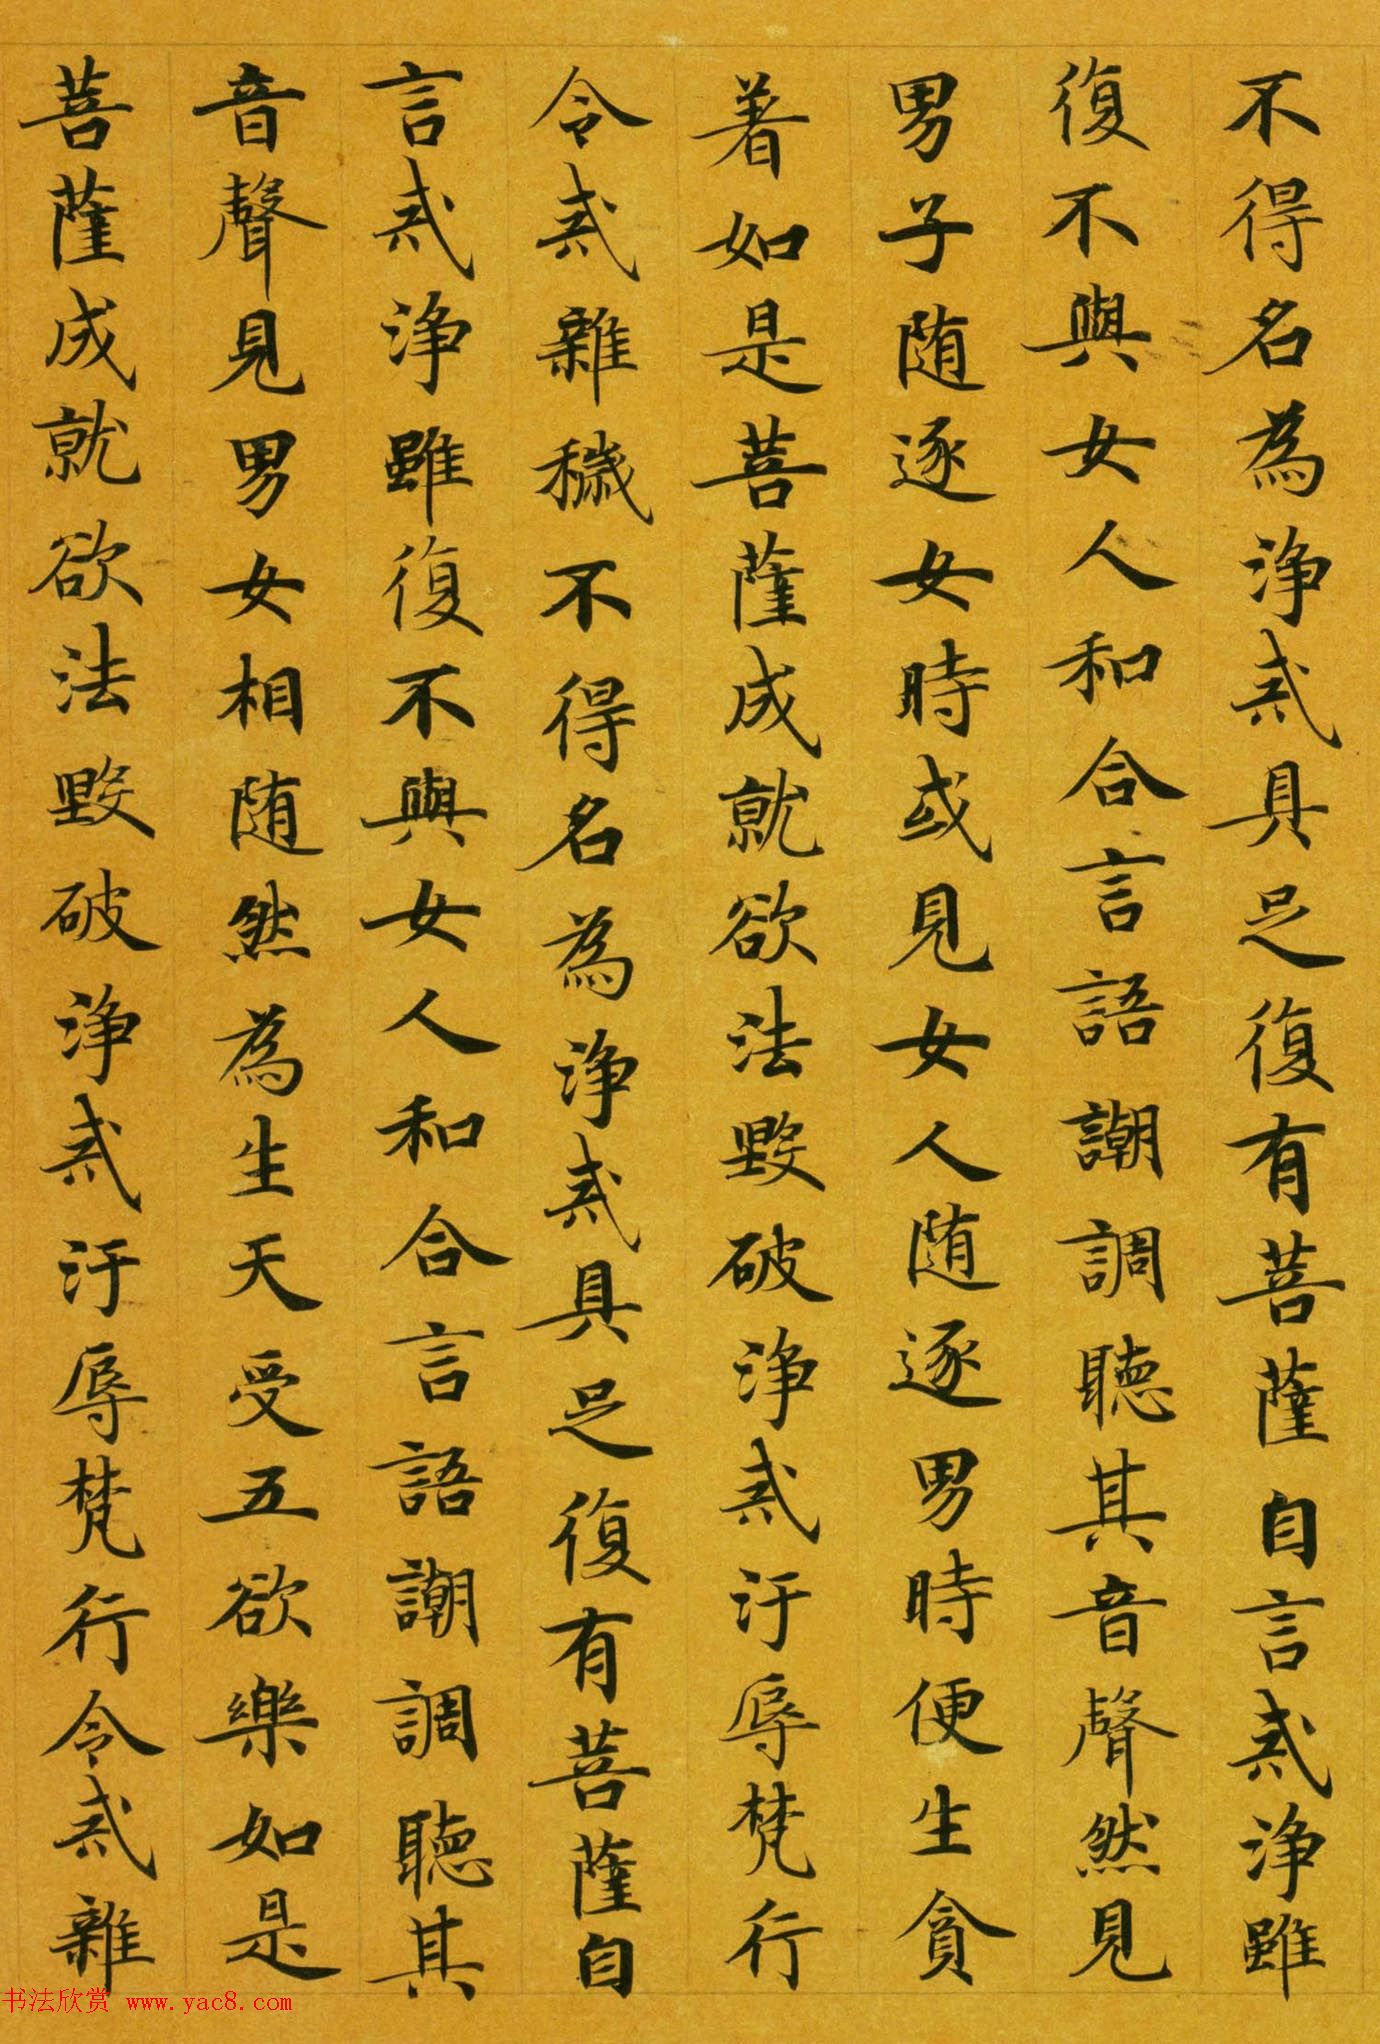 不得名為淨戒具足復有菩薩自言戒淨雖
復不與女人和合言語潮調聽其音聲然見
男子随逐女時或見女人随逐男時便生貪
著如是菩薩成就欲法毀破淨戒汙辱梵行
令戒雜穢不得名為淨戒具足復有菩薩自
言戒淨雖復不與女人和合言語潮調聽其
音聲見男女相随然為生天受五欲樂如是
菩薩成就欲法毀破淨戒汙辱梵行令戒雜
书法欣赏 www.yac8.com